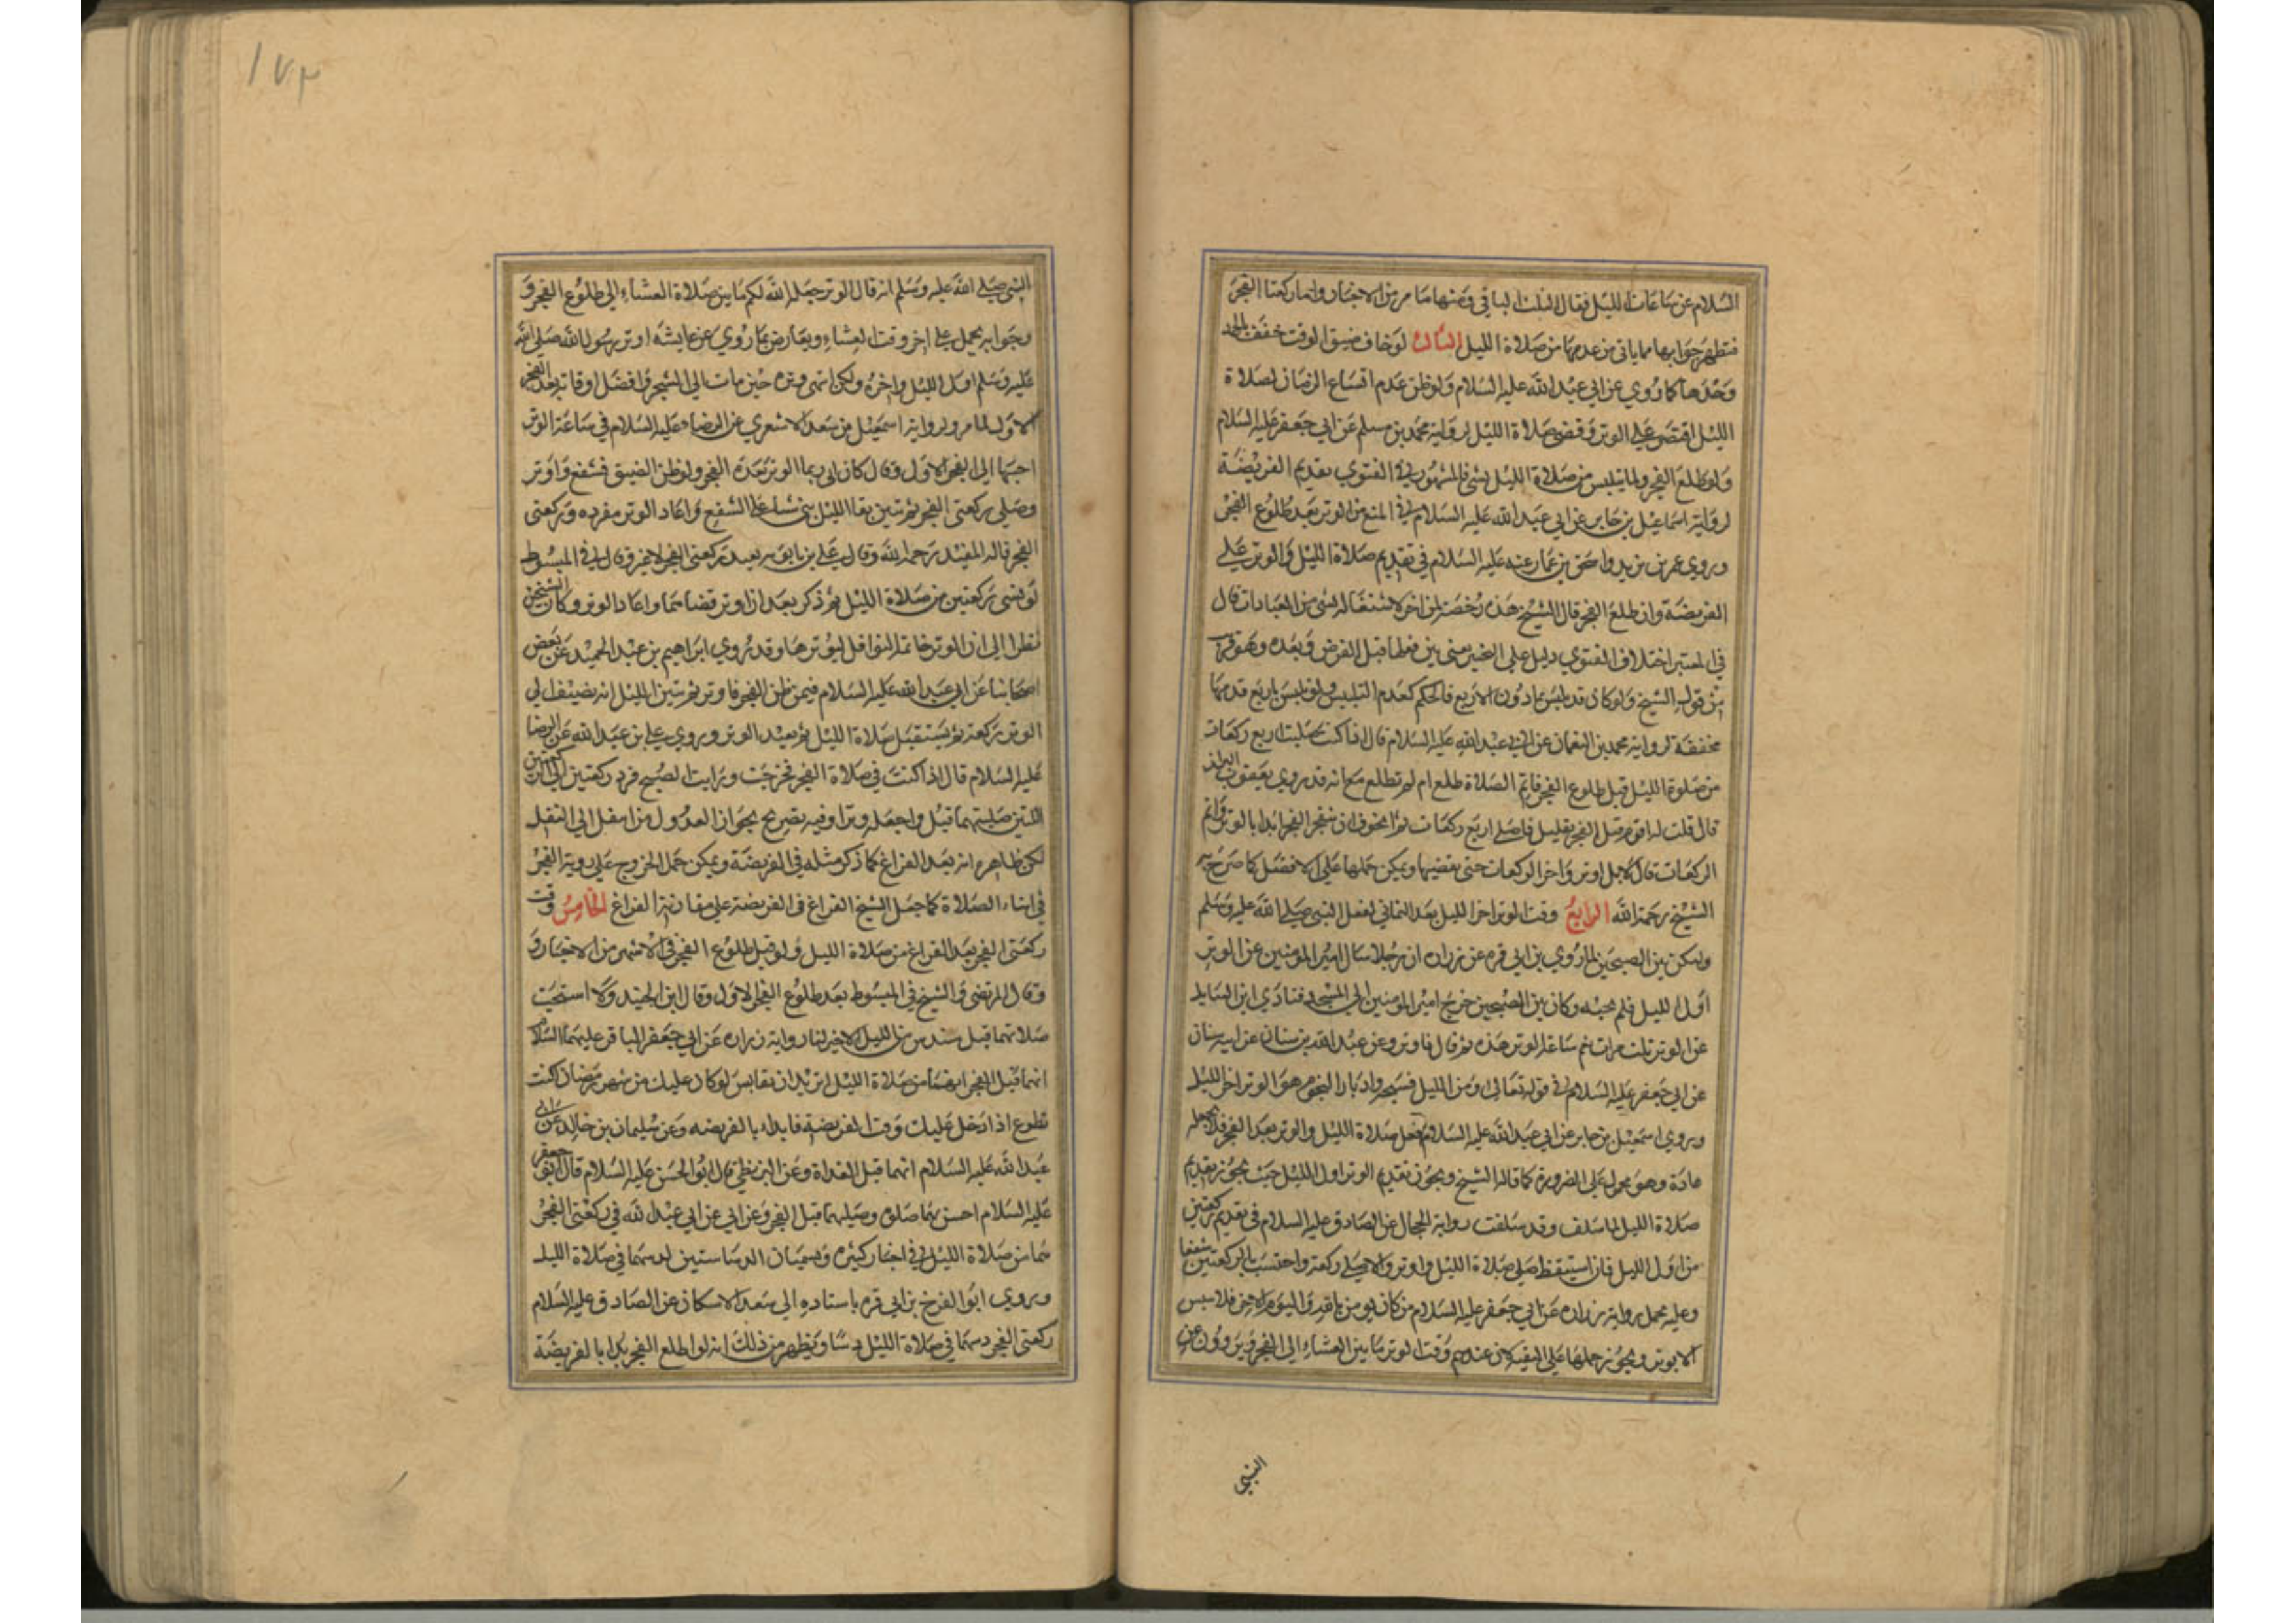 السلام عن ساعات الليل فقال الثلث الباقي ومنها ما مر من الاخبار واما ركعتا الفجر
فتظهر جوابها مما ياتي من عدمها من صلاة الليل الثالث لو خاف ضيق الوقت خفف بالحمد
وحدها كما روي عن ابي عبد الله عليه السلام ولو ظن عدم اتساع الزمان لصلاة
الليل اقتصر على الوتر وقضى صلاة الليل لرواية محمد بن مسلم عن ابي جعفر عليه السلام
ولو طلع الفجر ولما يتلبس من صلاة الليل بشئ فالمشهور في الفتوي تقديم الفريضة
لرواية اسماعيل بن جابر عن ابي عبد الله عليه السلام في المنع من الوتر بعد طلوع الفجر
وروي عمر بن يزيد واسحق بن عمار عنه عليه السلام في تقديم صلاة الليل والوتر على
الفريضة وان طلع الفجر قال الشيخ هذه رخصة لمن اخر لاشتغاله بشئ من العبادات قال
في المعتبر اختلاف الفتوي دليل على التخيير يعني بين فعلها قبل الفرض وبعده وهو قريب
من قول الشيخ ولو كان قد تلبس بما دون الاربع فالحكم كعدم التلبس ولو تلبس باربع قدمها
مخففة لرواية محمد بن النعمان عن ابي عبد الله عليه السلام قال اذا كنت صليت اربع ركعات
من صلوة الليل قبل طلوع الفجر فاتم الصلاة طلع ام لم تطلع مع انه قد روي يعقوب البزاز
قال قلت له اقوم قبل الفجر بقليل فاصلي اربع ركعات ثم اتخوف ان ينفجر الفجر ابدا بالوتر او اتم
الركعات قال لا بل اوتر واخر الركعات حتى تقضيها ويمكن حملها على الافضل كما صرح به
الشيخ رحمة الله الرابع وقت الوتر اخر الليل بعد الثماني لفعل النبي صلى الله عليه وسلم
وليكن بين الصبحين لما روي بن ابي قره عن زراره ان رجلا سال امير المؤمنين عن الوتر
اول الليل فلم يجبه وكان بين الصبحين خرج امير المومنين الي المسجد فنادي اين السايل
عن الوتر ثلث مرات نعم ساعة الوتر هذه ثم قال فاوتر وعن عبد الله بن سنان عن ابيه سنان
عن ابي جعفر عليه السلام في قوله تعالى ومن الليل فسبحه وادبار النجوم هو الوتر اخر الليل
وروي اسمعيل بن جابر عن ابي عبد الله عليه السلام فعل صلاة الليل والوتر بعد الفجر فلا يجعله
عادة وهو محمول على الضرورة كما قاله الشيخ ويجوز تقديم الوتر اول الليل حيث يجوز تقديم
صلاة الليل لما سلف وقد سلفت رواية الحجال عن الصادق عليه السلام في تقديم ركعتين
من اول الليل فان استيقظ صلى صلاة الليل واوتر والا صلى ركعة واحتسب بالركعتين شفعا
وعليه يحمل رواية زراره عن ابي جعفر عليه السلام من كان يومن بالله واليوم الاخر فلا يبيتن
الا بوتر ويجوز حملها على التقية لان عندهم وقت الوتر ما بين العشاء الى الفجر ويروون عن
النبي
١٧٣
النبي صلى الله عليه وسلم انه قال الوتر جعله الله لكم ما بين صلاة العشاء الى طلوع الفجر و
وجوابه يحمل على اخر وقت العشاء ويعارض بما روي عن عايشه اوتر رسول الله صلى الله
عليه وسلم اول الليل واخره ولكن انتهى وتره حين مات الى السحر وافضل اوقاته بعد الفجر
الاول لما مر ولرواية اسمعيل بن سعد الاشعري عن الرضا عليه السلام في ساعة الوتر
احبها الى الفجر الاول وقال كان ابي ربما اوتر بعده الفجر ولو ظن الضيق فشفع واوتر
وصلي ركعتي الفجر ثم تبين بقا الليل بنى ستا على الشفع واعاد الوتر مفرده وركعتى
الفجر قاله المفيد رحمه الله وقال علي بن بابويه يعيد ركعتي الفجر لا غير وقال في المبسوط
لو نسي ركعتين من صلاة الليل ثم ذكر بعد ان اوتر قضاهما واعاد الوتر وكان الشيخين
نظرا الى ان الوتر خاتمة النوافل ليوترها وقد روي ابراهيم بن عبد الحميد عن بعض
اصحابنا عن ابي عبد الله عليه السلام فيمن ظن الفجر فاوتر ثم تبين الليل انه يضيف الي
الوتر ركعة ثم يستقبل صلاة الليل ثم يعيد الوتر وروي علي بن عبد الله عن الرضا
عليه السلام قال اذا كنت في صلاة الفجر فخرجت ورايت الصبح فزد ركعتين الي الركعتين
اللتين صليتهما قبل واجعله وترا وفيه تصريح بجواز العدول من النفل الى النفل
لكن ظاهره انه بعد الفراغ كما ذكر مثله في الفريضة ويمكن حمل الخروج على روية الفجر
في اثناء الصلاة كما حمل الشيخ الفراغ في الفريضة على مقاربة الفراغ الخامس وقت
ركعتى الفجر بعد الفراغ من صلاة الليل ولو قبل طلوع الفجر في الاشهر من الاخبار و
وقال المرتضى والشيخ في المبسوط بعد طلوع الفجر الاول وقال ابن الجنيد ولا استحب
صلاتهما قبل سدس من الليل الاخير لنا رواية زراره عن ابي جعفر الباقر عليهما السلام
انهما قبل الفجر انهما من صلاة الليل اتريد ان تقايس لو كان عليك من شهر رمضان اكنت
تطوع اذا دخل عليك وقت الفريضة فابداء بالفريضه وعن سليمان بن خالد عن ابي
عبد الله عليه السلام انهما قبل الغداة وعن البزنطي قال ابو الحسن عليه السلام قال ابو جعفر
عليه السلام احسن بهما صلوة وصليهما قبل الفجر وعن ابي عن ابي عبد الله في ركعتى الفجر
هما من صلاة الليل في اخبار كثيره وتسميان الدساستين لدسهما في صلاة الليل
وروي ابو الفرج بن ابي قره باسناده الى سعد الاسكاف عن الصادق عليه السلام
ركعتى الفجر دسهما في صلاة الليل دسا ويظهر من ذلك انه لو اطلع الفجر بدا بالفريضة